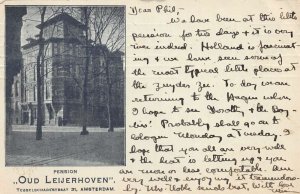 Dear Phil,
We have been at this little
pension for two days & it is very
nice indeed. Holland is fascinat-
ing & we have seen some of
the most typical little places at
the Zuyder Zee. To day we are
returning to the Hague when
I hope to see "Dorothy & the Boy
bis". Probably shall go on to
Cologne Monday or Tuesday. I
hope that you all are very well
& the heat is letting up & you
are more or less comfortable. Am
very well & enjoy
by. Mrs. sends best, With love
PENSION
„OUD LEIJERHOVEN”
TESSELSCHADESTRAAT 31, AMSTERDAM.